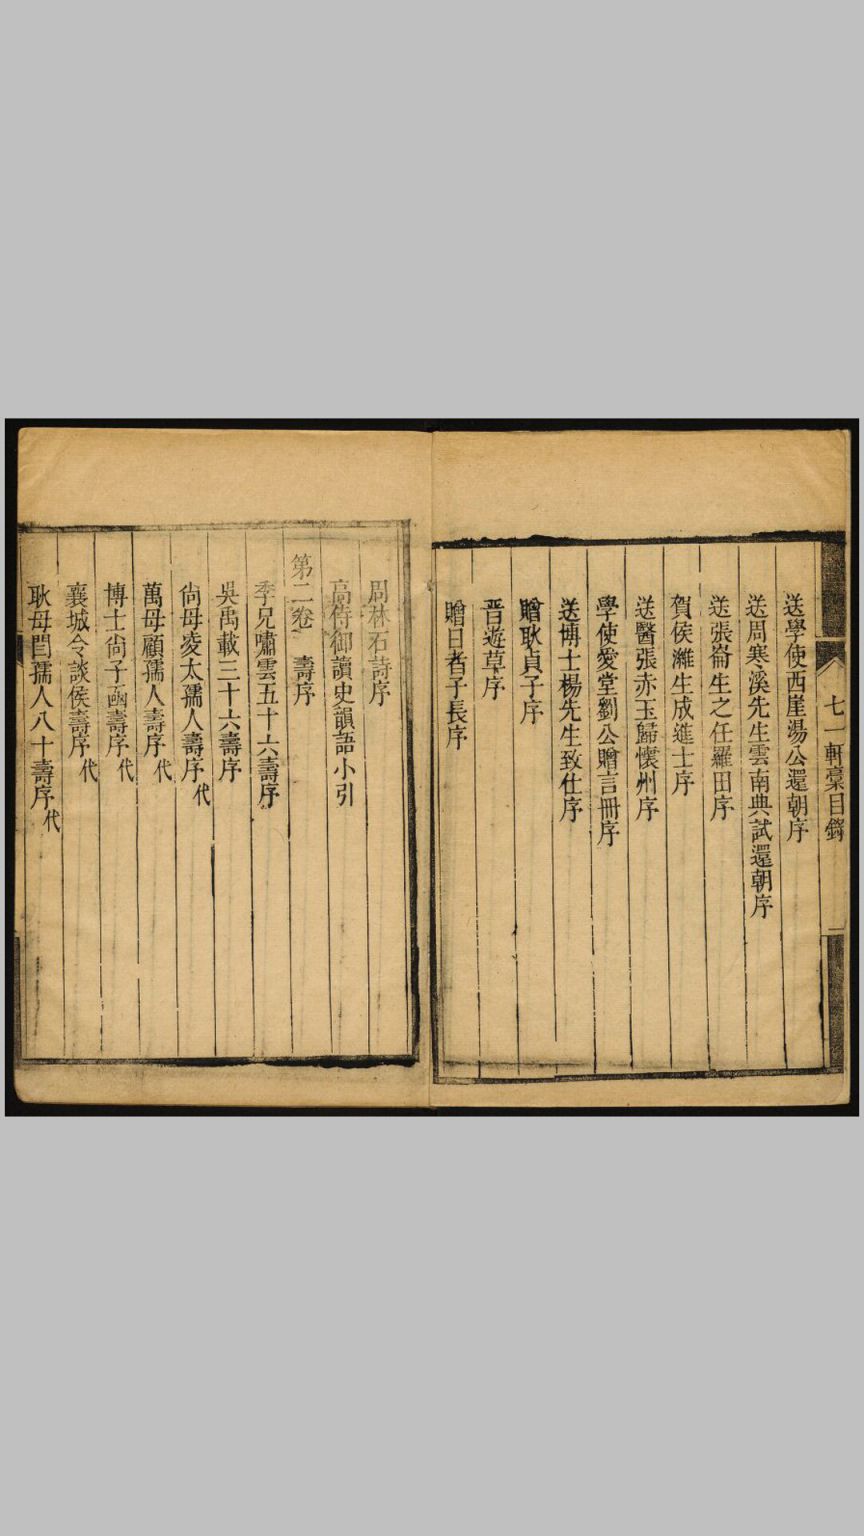 七一軒稾目錄
送學使西崖湯公還朝序
送周寒溪先生雲南典試還朝序
送張崙生之任羅田序
賀侯濰生成進士序
送醫張赤玉歸懷州序
學使愛堂劉公贈言冊序
送博士楊先生致仕序
贈耿貞子序
晋遊草序
贈日者子長序
周林石詩序
高侍御讀史韻語小引
第二卷 壽序
季兄嘯雲五十六壽序
吳禹載三十六壽序
尙母凌太孺人壽序代
萬母顧孺人壽序代
博士尙子函壽序代
襄城令談侯壽序代
耿母閆孺人八十壽序代